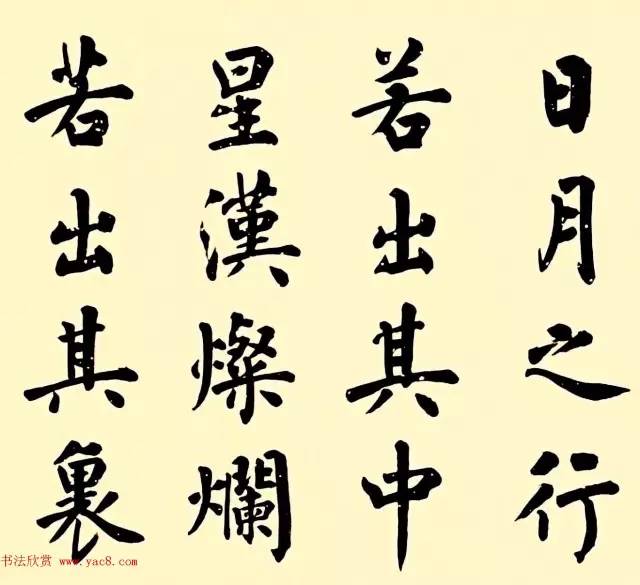 日月之行
若出其中
星漢燦爛
若出其裏
书法欣赏 www.yac8.com